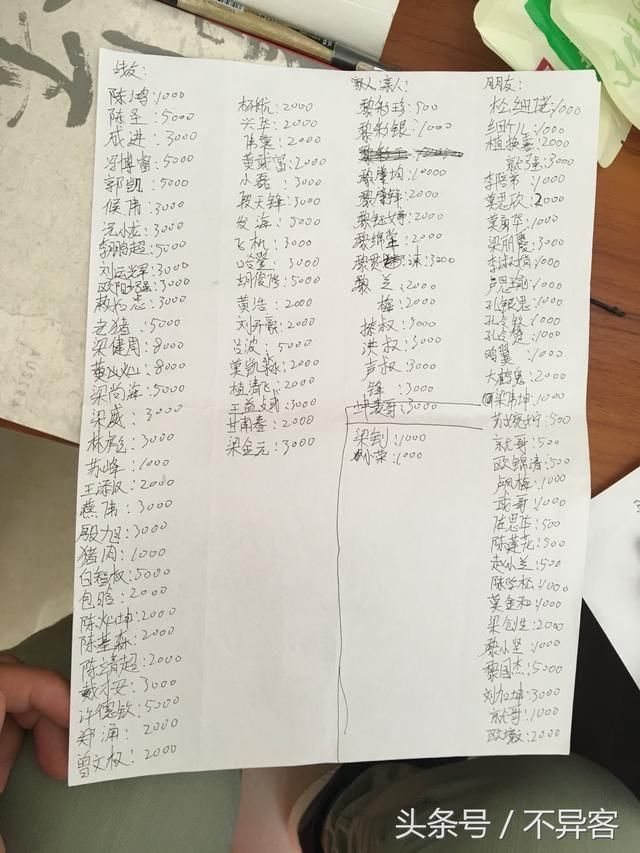 战友:
陈鸿:1000
陈圣:5000
成进:3000
冯博睿:5000
郭凯:5000
侯伟:3000
沅小龙:3000
李鹏超:5000
刘运光军:3000
欧阳小强:3000
赖相志:3000
老猪:5000
梁健周:8000
黄火火:8000
梁尚海:5000
梁威:3000
林庐:3000
苏峰:1000
王添汉:2000
燕伟:3000
殷旭:3000
猪肉:1000
白铠权:5000
包晗:2000
陈灿坤:2000
陈基森:2000
陈清超:2000
戴小安:3000
许德钦:5000
郑涌:2000
曾文权:2000
杨航:2000
兴华:2000
伟棠:2000
黄武富:2000
小磊:3000
殷天锋:3000
发海:5000
飞机:3000
哈登:3000
胡俊修:5000
黄浩:2000
刘开豪:2000
吕波:5000
莫凯淼:2000
植清飞:2000
王益斌:3000
甘南春:2000
梁金元:3000
家人亲人:
黎彩珍:500
黎彩银:1000
黎肇均:10000
黎肇锋:2000
黎钰婷:2000
黎绵堂:2000
黎贤 :3000
黎兰:2000
梅:2000
榇叔:3000
洪叔:3000
声叔:3000
锋:3000
坤表哥:3000
梁钊:1000
小荣:1000
朋友:
松细佬:1000
细竹:1000
植换娄:2000
就强:3000
李 书:1000
莫思欣:2000
莫勇华:1000
梁丽霞:3000
李淑娟:1000
卢思瑜:1000
孔银恩:1000
孔令 :1000
孔令楚:1000
鸡翼:1000
大鹤鬼:2000
梁伟坤:1000
苏婉宁:500
京龙哥:500
欧锦清:500
卢凤梅:1000
成哥:1000
陈思华:500
陈莲花:500
赵小兰:500
陈学松:1000
莫金和:1000
梁创生:2000
黎小坚:1000
黎国杰:5000
刘加坤:3000
就哥:1000
欧境文:2000
头条号 / 不异客